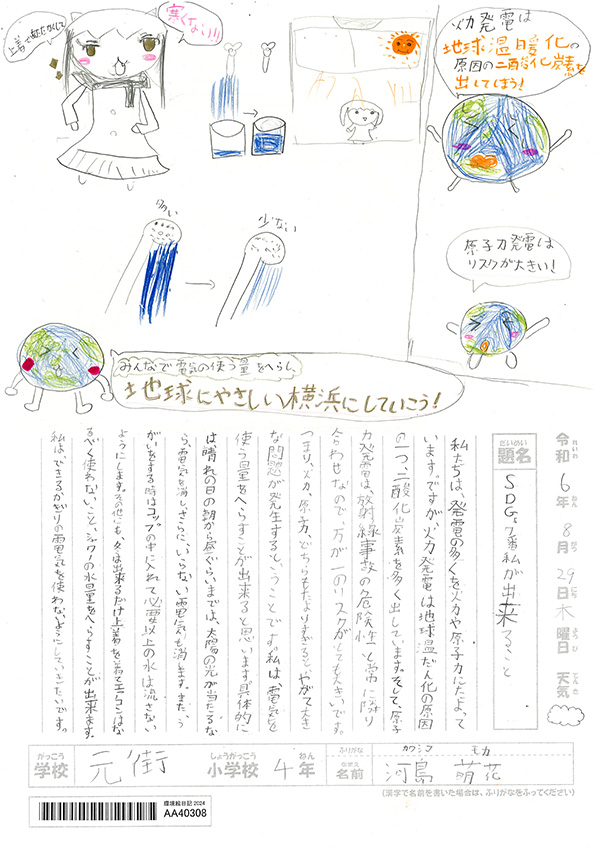 上着であたたかくして
寒くない!!!
火力発電は
地球温暖化の
原因の二酸化炭素を
出してしまう!
原子力発電は
リスクが大きい!
多い
少ない
みんなで電気の使う量をへらし、
地球にやさしい横浜にしていこう!
令和6年8月29日木曜日 天気
れいわ ねん がつ にち ようび てんき
だいめい
題名
SDGs7番私が出来ること
私たちは、発電の多くを火力や原子力にたよって
います。ですが火力発電は地球温だん化の原因
の一つ、二酸化炭素を多く出しています。そして、原子
力発電は、放射線事故の危険性と常に隣り
合わせなので、万が一のリスクがとても大きいです。
つまり、火力、原子力、どちらもたよりすぎると、やがて大き
な問題が発生するということです。私は、電気を
使う量をへらすことが出来ると思います。具体的に
は晴れの日の朝から昼ぐらいまでは、太陽の光が当たるな
ら、電気を消し、さらに、いらない電気も消します。また、う
がいをする時はコップの中に入れて必要以上の水は流さない
ようにします。その他にも、冬は出来るだけ上着を着てエアコンはな
るべく使わないこと、シャワーの水量をへらすことが出来ます。
私は、できるかぎりの電気を使わないようにしていきたいです。
がっこう
学校
元街
しょうがっこう
小学校
4年
ねん
ふりがな
カワシマ モカ
なまえ
名前
河島 萌花
(漢字で名前を書いた場合は、ふりがなをふってください)
環境絵日記2024
AA40308